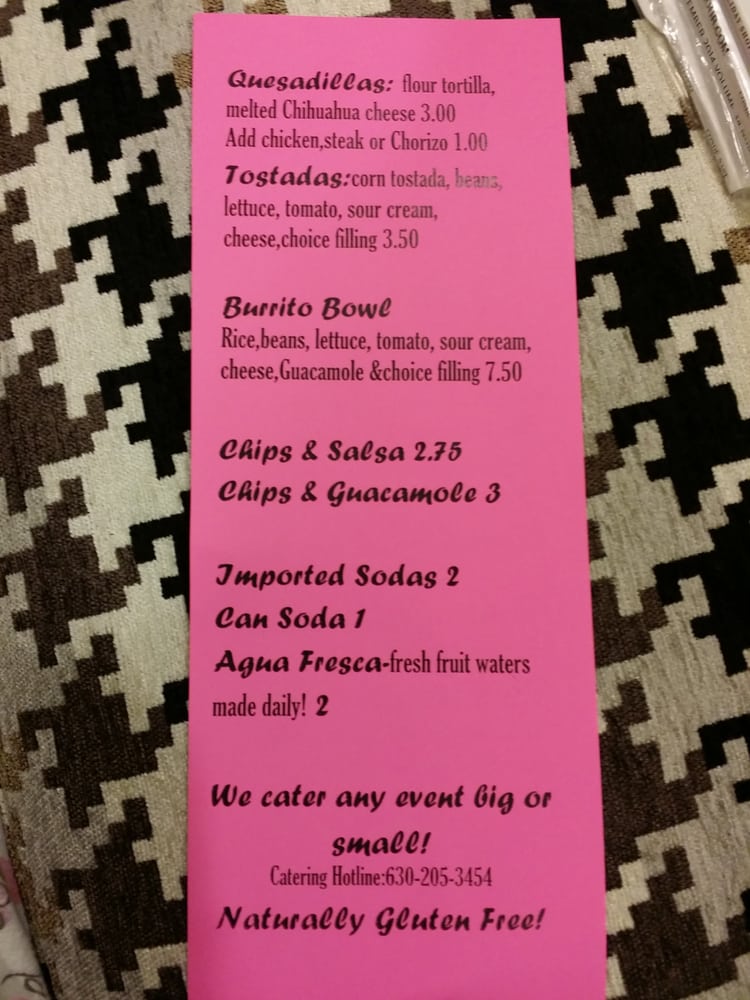 Quesadillas: flour tortilla,
melted Chihuahua cheese 3.00
Add chicken,steak or Chorizo 1.00
Tostadas:corn tostada, beans,
lettuce, tomato, sour cream,
cheese,choice filling 3.50
Burrito Bowl
Rice,beans, lettuce, tomato, sour cream,
cheese,Guacamole &choice filling 7.50
Chips & Salsa 2.75
Chips & Guacamole 3
Imported Sodas 2
Can Soda 1
Agua Fresca-fresh fruit waters
made daily! 2
We cater any event big or
small!
Catering Hotline:630-205-3454
Naturally Gluten Free!